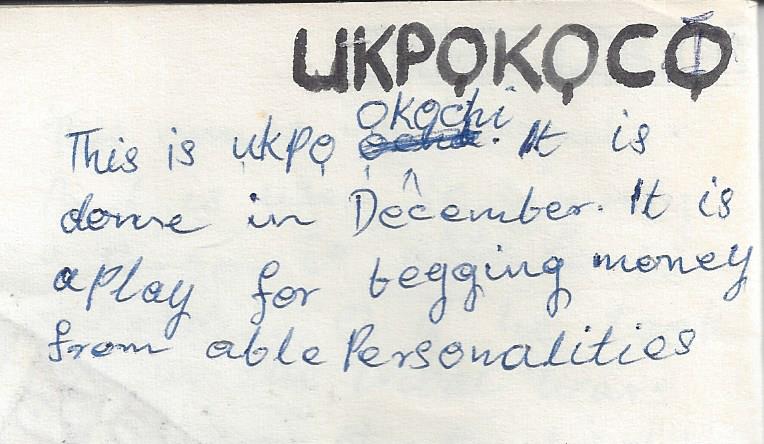 ỤKPỌKỌCỌ
This is ụkpọ okọchi. It is
done in December. It is
a play for begging money
from able Personalities